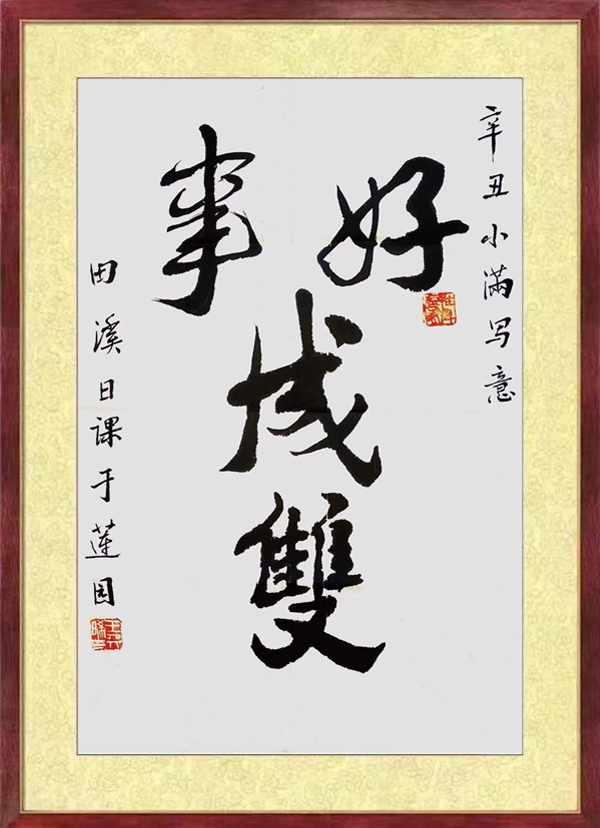 辛丑小满写意
好事
成
雙
田溪日课于莲园